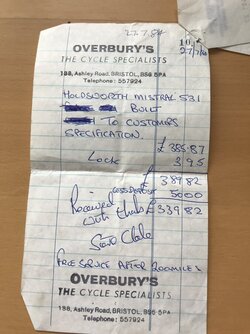 27.7.84
OVERBURY'S
THE CYCLE SPECIALISTS
188, Ashley Road, BRISTOL, BS6 5PA
Telephone: 557924
HOLDSWORTH MISTRAL 531
BUILT
TO CUSTOMERS
SPECIFICATION.
£ 385.87
Lock 3.95
£ 389.82
LESS DEPOSIT 50.00
£ 339.82
Received
with thanks
FREE SERVICE AFTER 200 MILES
OVERBURY'S
THE CYCLE SPECIALISTS
188, Ashley Road, BRISTOL, BS6 5PA
Telephone: 557924